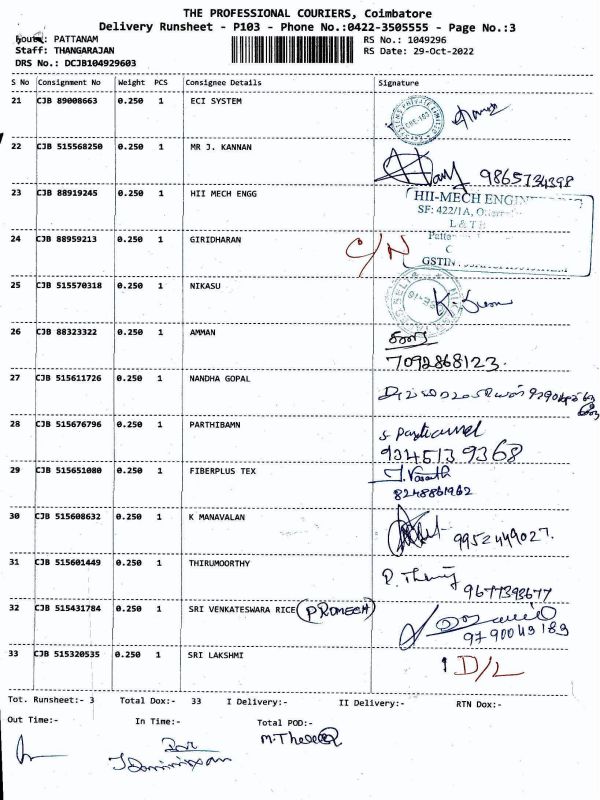 THE PROFESSIONAL COURIERS, Coimbatore
Delivery Runsheet - P103 - Phone No.:0422-3505555 - Page No.:3
PATTANAM RS No.: 1049296
Staff: THANGARAJAN RS Date: 29-Oct-2022
DRS No.: DCJB104929603
S No Consignment No Weight PCS Consignee Details Signature
21 CJB 89008663 0.250 1 ECI SYSTEM
22 CJB 515568250 0.250 1 MR J. KANNAN
9865734398
23 CJB 88919245 0.250 1 HII MECH ENGG
HII-MECH
SF: 422/1A,
24 CJB 88959213 0.250 1 GIRIDHARAN C/N
GSTIN
25 CJB 515570318 0.250 1 NIKASU
26 CJB 88323322 0.250 1 AMMAN
7092868123.
27 CJB 515611726 0.250 1 NANDHA GOPAL
28 CJB 515676796 0.250 1 PARTHIBAMN
9345139368
29 CJB 515651080 0.250 1 FIBERPLUS TEX J. Vasanth
8248861962
30 CJB 515608632 0.250 1 K MANAVALAN
9952449027.
31 CJB 515601449 0.250 1 THIRUMOORTHY
9677398677
32 CJB 515431784 0.250 1 SRI VENKATESWARA RICE (PROMECH)
9790049189
33 CJB 515320535 0.250 1 SRI LAKSHMI D/L
Tot. Runsheet:- 3 Total Dox:- 33 I Delivery:- II Delivery:- RTN Dox:-
Out Time:- In Time:- Total POD:-